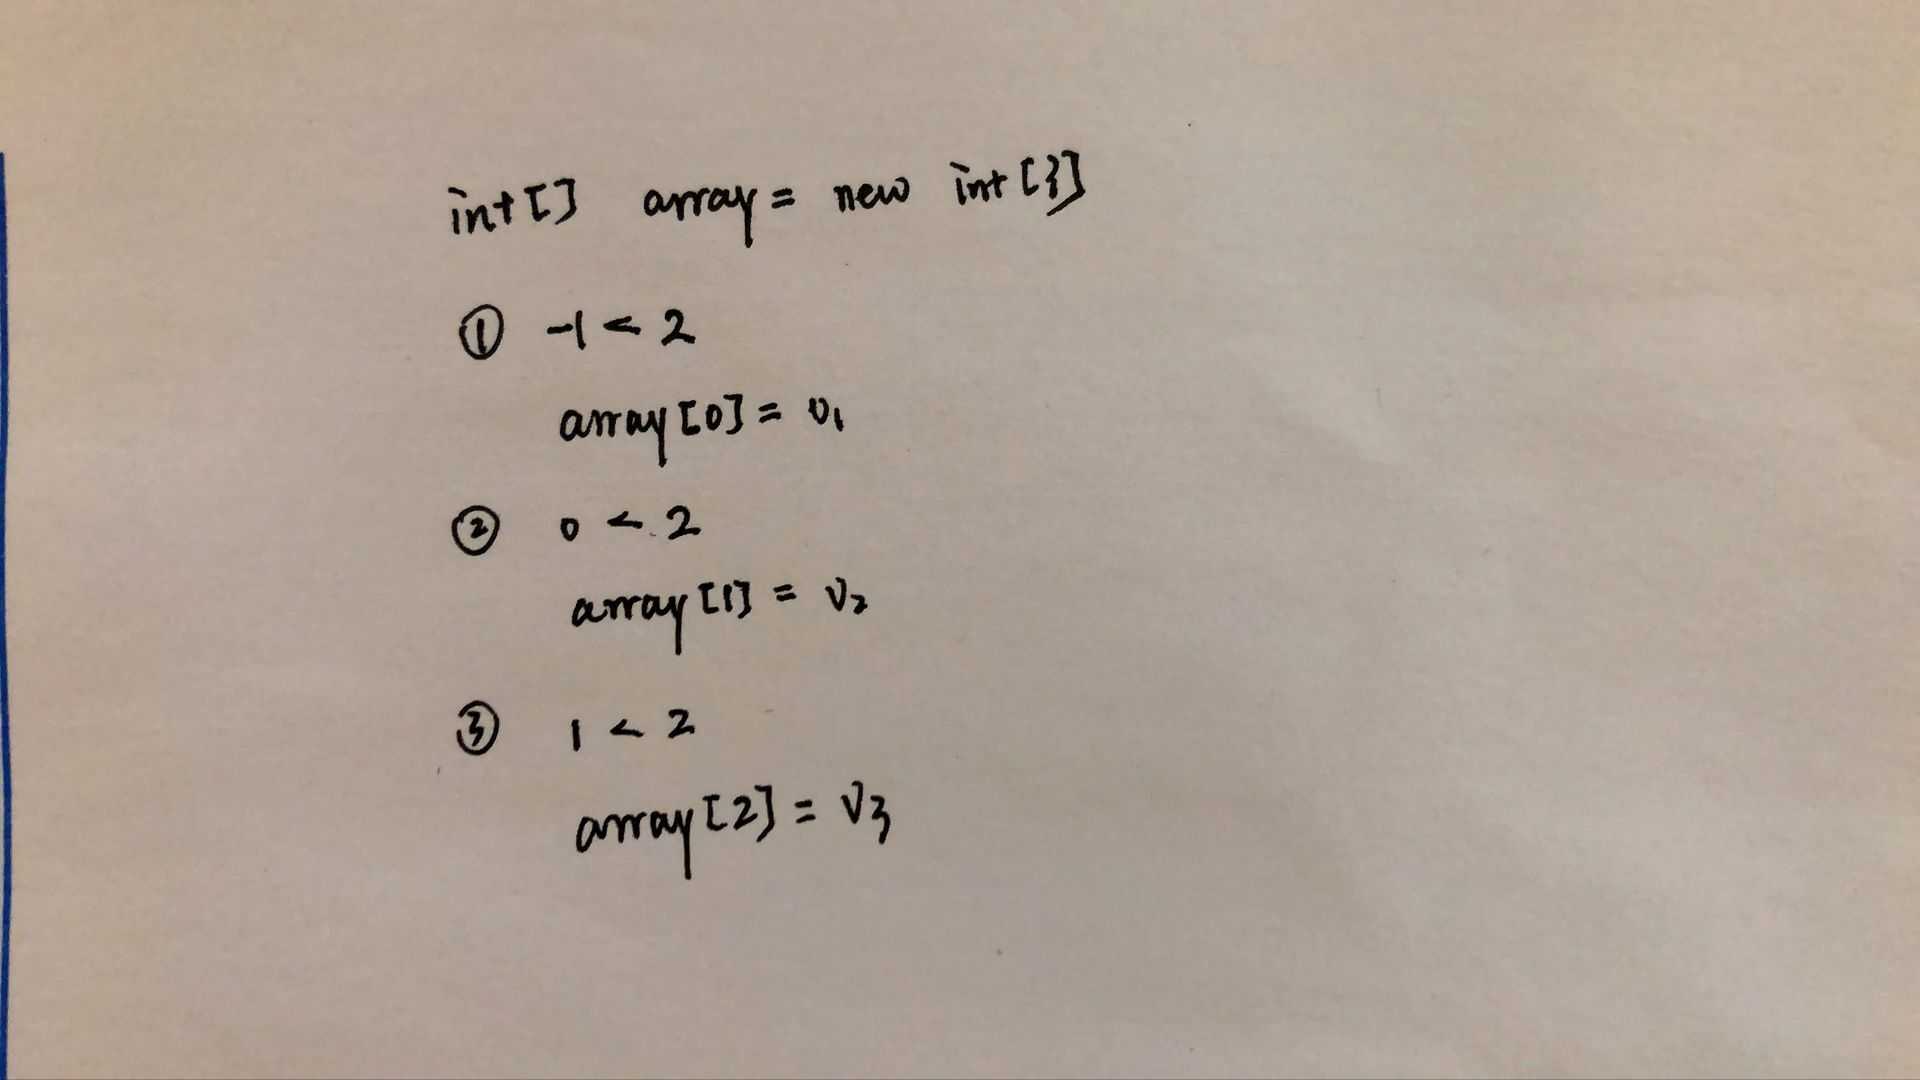 int[] array = new int[3]
① -1 < 2
array[0] = v1
② 0 < 2
array[1] = v2
③ 1 < 2
array[2] = v3